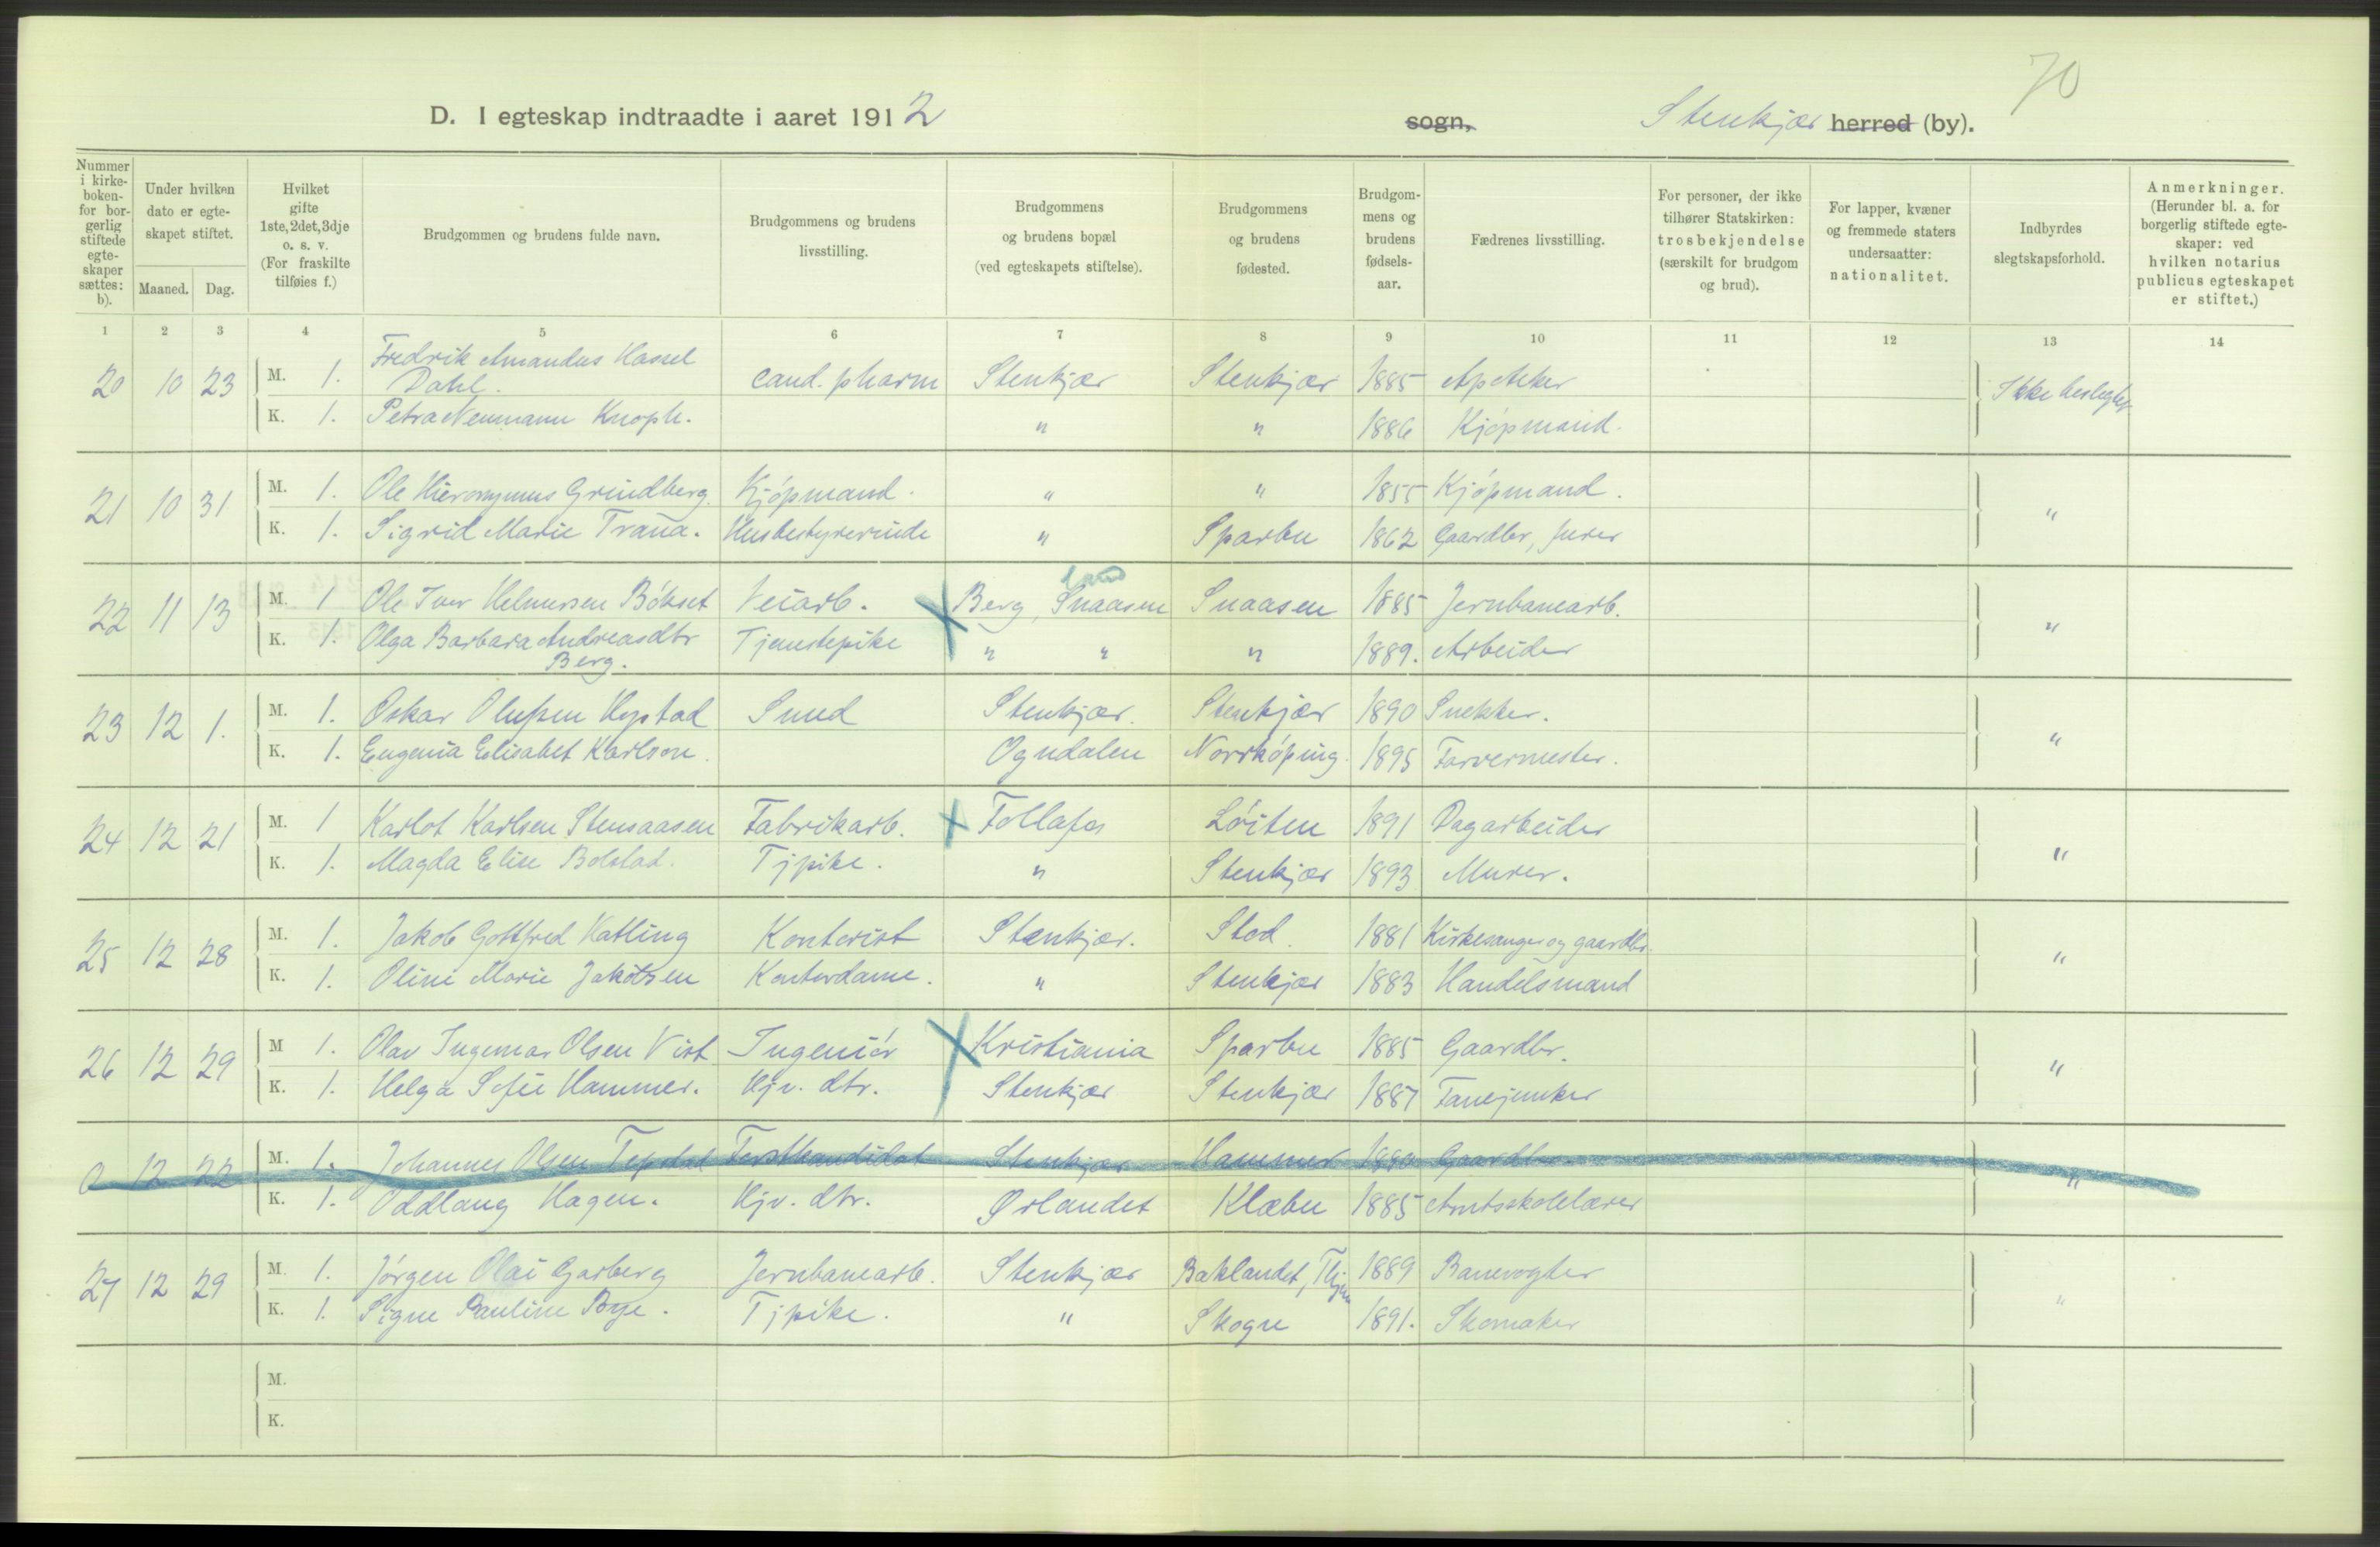 70
D. I egteskap indtraadte i aaret 1912 sogn, Stenkjær herred (by).
Nummer i kirkeboken- for borgerlig stiftede egteskaper sættes: b).
Under hvilken dato er egteskapet stiftet.
Maaned. Dag.
Hvilket gifte 1ste, 2det, 3dje o. s. v. (For fraskilte tilføies f.)
Brudgommen og brudens fulde navn.
Brudgommens og brudens livsstilling.
Brudgommens og brudens bopæl (ved egteskapets stiftelse).
Brudgommens og brudens fødested.
Brudgommens og brudens fødselsaar.
Fædrenes livsstilling.
For personer, der ikke tilhører Statskirken: trosbekjendelse (særskilt for brudgom og brud).
For lapper, kvæner og fremmede staters undersaatter: nationalitet.
Indbyrdes slegtskapsforhold.
Anmerkninger. (Herunder bl. a. for borgerlig stiftede egteskaper: ved hvilken notarius publicus egteskapet er stiftet.)
1 2 3 4 5 6 7 8 9 10 11 12 13 14
20 10 23 M. 1. Fredrik Amandus Hassel Dahl. cand. pharm Stenkjær Stenkjær 1885 Apoteker Ikke beslegtet
K. 1. Petra Neumann Knoph. " " 1886 Kjøpmand.
21 10 31 M. 1. Ole Hieronymus Grindberg. Kjøpmand. " " 1855 Kjøpmand. "
K. 1. Sigrid Marie Trana. Husbestyrerinde " Sparbu 1862 Gaardbr,
22 11 13 M. 1 Ole Iver Helmersen Bøkset Veiarb. X Berg, Snaasen Snaasen 1885 Jernbanearb. "
K. 1. Olga Barbara Andreasdtr Berg. Tjenestepike " " " 1889. Arbeider
23 12 1. M. 1. Oskar Olufsen Hystad Smed Stenkjær. Stenkjær 1890 Snekker. "
K. 1. Eugenia Elisabet Karlson. Ogndalen Norrköping. 1895 Farvermester.
24 12 21 M. 1 Karlot Karlsen Stensaasen Fabrikarb. X Follafos Løiten 1891 Dagarbeider "
K. 1. Magda Elise Bolstad. Tjpike. " Stenkjær 1893 Murer.
25 12 28 M. 1. Jakob Gottfred Katling Kontorist Stenkjær. Stod. 1881 Kirkesanger og gaardbr. "
K. 1. Oline Marie Jakobsen Kontordame. " Stenkjær 1883 Handelsmand
26 12 29 M 1. Olav Ingemar Olsen Vist Ingeniør X Kristiania Sparbu 1885 Gaardbr. "
K. 1. Helga Sofie Hammer. Hjv. dtr. Stenkjær Stenkjær 1887 Fanejunker
0 12 22 M. 1. Johannes Olsen Forstkandidat Stenkjær Hammer Gaardbr. "
K. 1. Oddlaug Hagen. Hjv. dtr. Ørlandet Klæbu 1885 Amtsskolelærer
27 12 29 M. 1. Jørgen Olai Garberg Jernbanearb. Stenkjær Baklandet, 1889 Banevogter "
K. 1. Signe Pauline Boge. Tjpike. " Skogn 1891. Skomaker
M.
K.